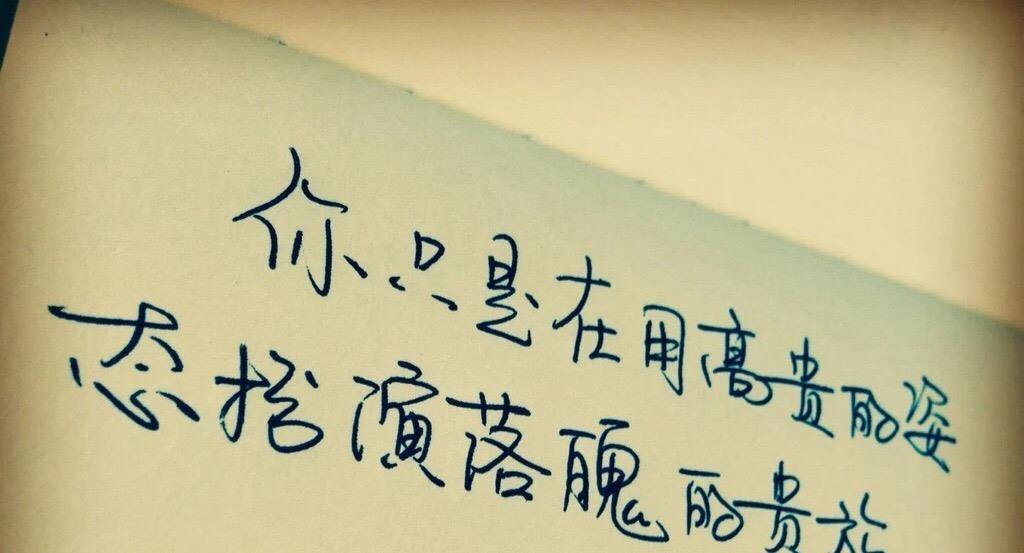 你只是在用高贵的姿
态扮演落魄的贵